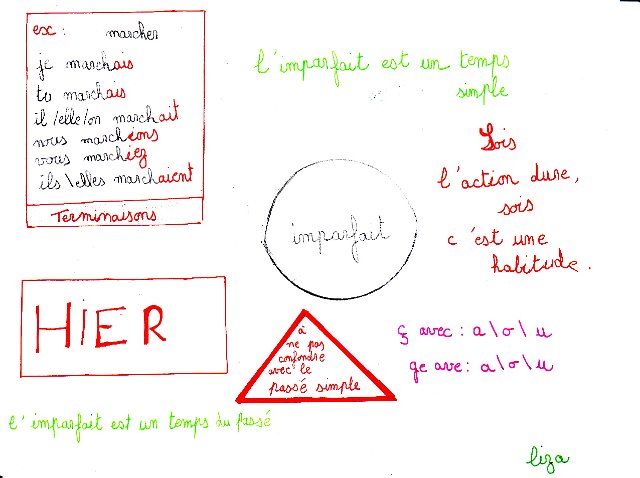 ex : marcher
je marchais
tu marchais
il /elle/on marchait
nous marchions
vous marchiez
ils \elles marchaient
Terminaisons
l'imparfait est un temps
simple
Sois
l'action dure,
sois
c'est une
habitude.
imparfait
HIER
à
ne pas
confondre
avec le
passé simple
ç avec : a \ o \ u
ge ave : a \ o \ u
l'imparfait est un temps du passé
liza